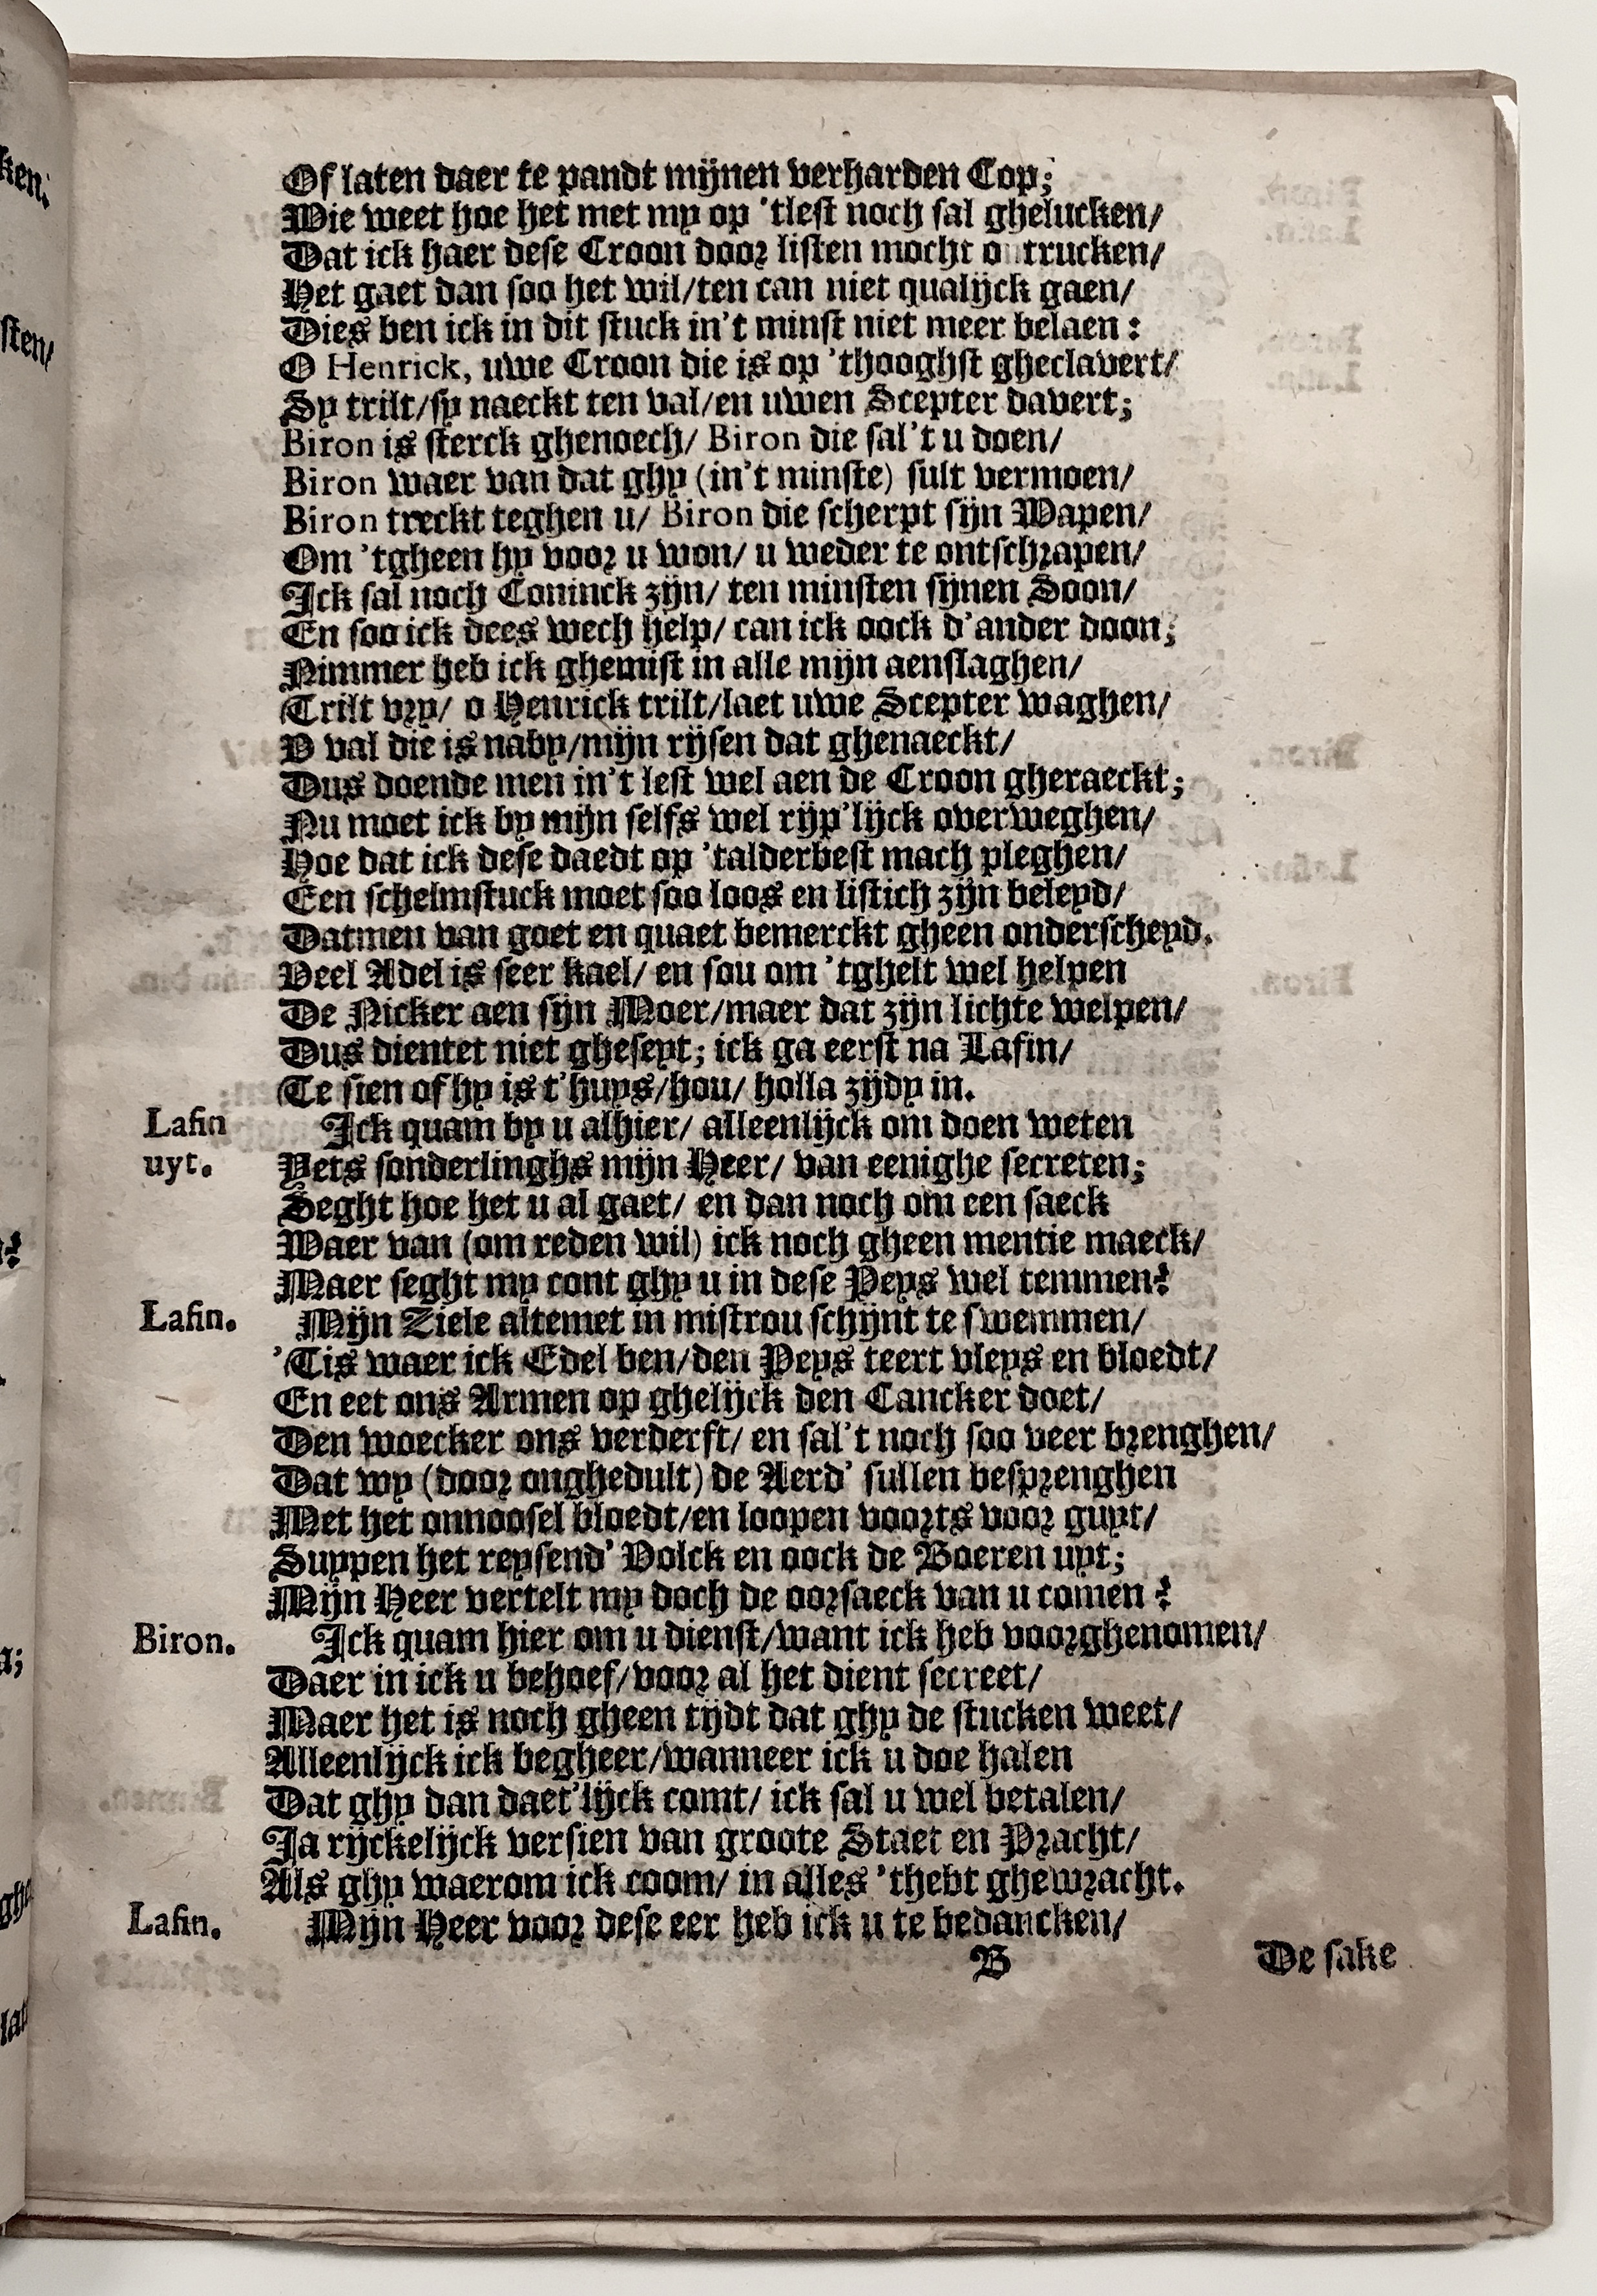 Of laten daer te pandt mijnen verharden Cop;
Wie weet hoe het met my op 'tlest noch sal ghelucken/
Dat ick haer dese Croon door listen mocht o trucken/
Het gaet dan soo het wil/ten can niet qualijck gaen/
Dies ben ick in dit stuck in't minst niet meer belaen:
O Henrick, uwe Croon die is op 'thooghst gheclavert/
Sy trilt/sy naeckt ten val/en uwen Scepter davert;
Biron is sterck ghenoech/ Biron die sal't u doen/
Biron waer van dat ghy (in't minste) sult vermoen/
Biron treckt teghen u/ Biron die scherpt sijn Wapen/
Om 'tgheen hy voor u won/ u weder te ontschrapen/
Ick sal noch Coninck zijn/ ten minsten sijnen Soon/
En soo ick dees wech help/ can ick oock d'ander doon;
Nimmer heb ick ghemist in alle mijn aenslaghen/
Trilt vry/ o Henrick trilt/laet uwe Scepter waghen/
V val die is naby/mijn rijsen dat ghenaeckt/
Dus doende men in't lest wel aen de Croon gheraeckt;
Nu moet ick by mijn selfs wel rijp'lijck overweghen/
Hoe dat ick dese daedt op 'talderbest mach pleghen/
Een schelmstuck moet soo loos en listich zijn beleyd/
Datmen van goet en quaet bemerckt gheen onderscheyd.
Veel Adel is seer kael/ en sou om 'tghelt wel helpen
De Nicker aen sijn Moer/maer dat zijn lichte welpen/
Dus dientet niet gheseyt; ick ga eerst na Lafin/
Te sien of hy is t'huys/hou/ holla zijdy in.
Lafin Ick quam by u alhier/ alleenlijck om doen weten
uyt. Yets sonderlinghs mijn Heer/ van eenighe secreten;
Seght hoe het u al gaet/ en dan noch om een saeck
Waer van (om reden wil) ick noch gheen mentie maeck/
Maer seght my cont ghy u in dese Peys wel temmen?
Lafin. Mijn Ziele altemet in mistrou schijnt te swemmen/
'Tis waer ick Edel ben/den Peys teert vleys en bloedt/
En eet ons Armen op ghelijck den Cancker doet/
Den woecker ons verderft/ en sal't noch soo veer brenghen/
Dat wy (door onghedult) de Aerd' sullen besprenghen
Met het onnoosel bloedt/en loopen voorts voor guyt/
Suypen het reysend' Volck en oock de Boeren uyt;
Mijn Heer vertelt my doch de oorsaeck van u comen?
Biron. Ick quam hier om u dienst/want ick heb voorghenomen/
Daer in ick u behoef/voor al het dient secreet/
Maer het is noch gheen tijdt dat ghy de stucken weet/
Alleenlijck ick begheer/wanneer ick u doe halen
Dat ghy dan daet'lijck comt/ ick sal u wel betalen/
Ja rijckelijck versien van groote Staet en Pracht/
Als ghy waerom ick coom/ in alles 'thebt ghewracht.
Lafin. Mijn Heer voor dese eer heb ick u te bedancken/
B De sake